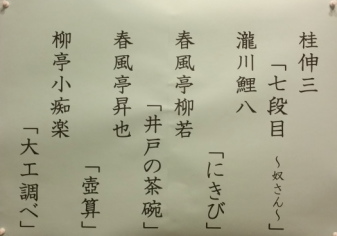 桂伸三
「七段目 ～奴さん～」
瀧川鯉八
「にきび」
春風亭柳若
「井戸の茶碗」
春風亭昇也
「壺算」
柳亭小痴楽
「大工調べ」